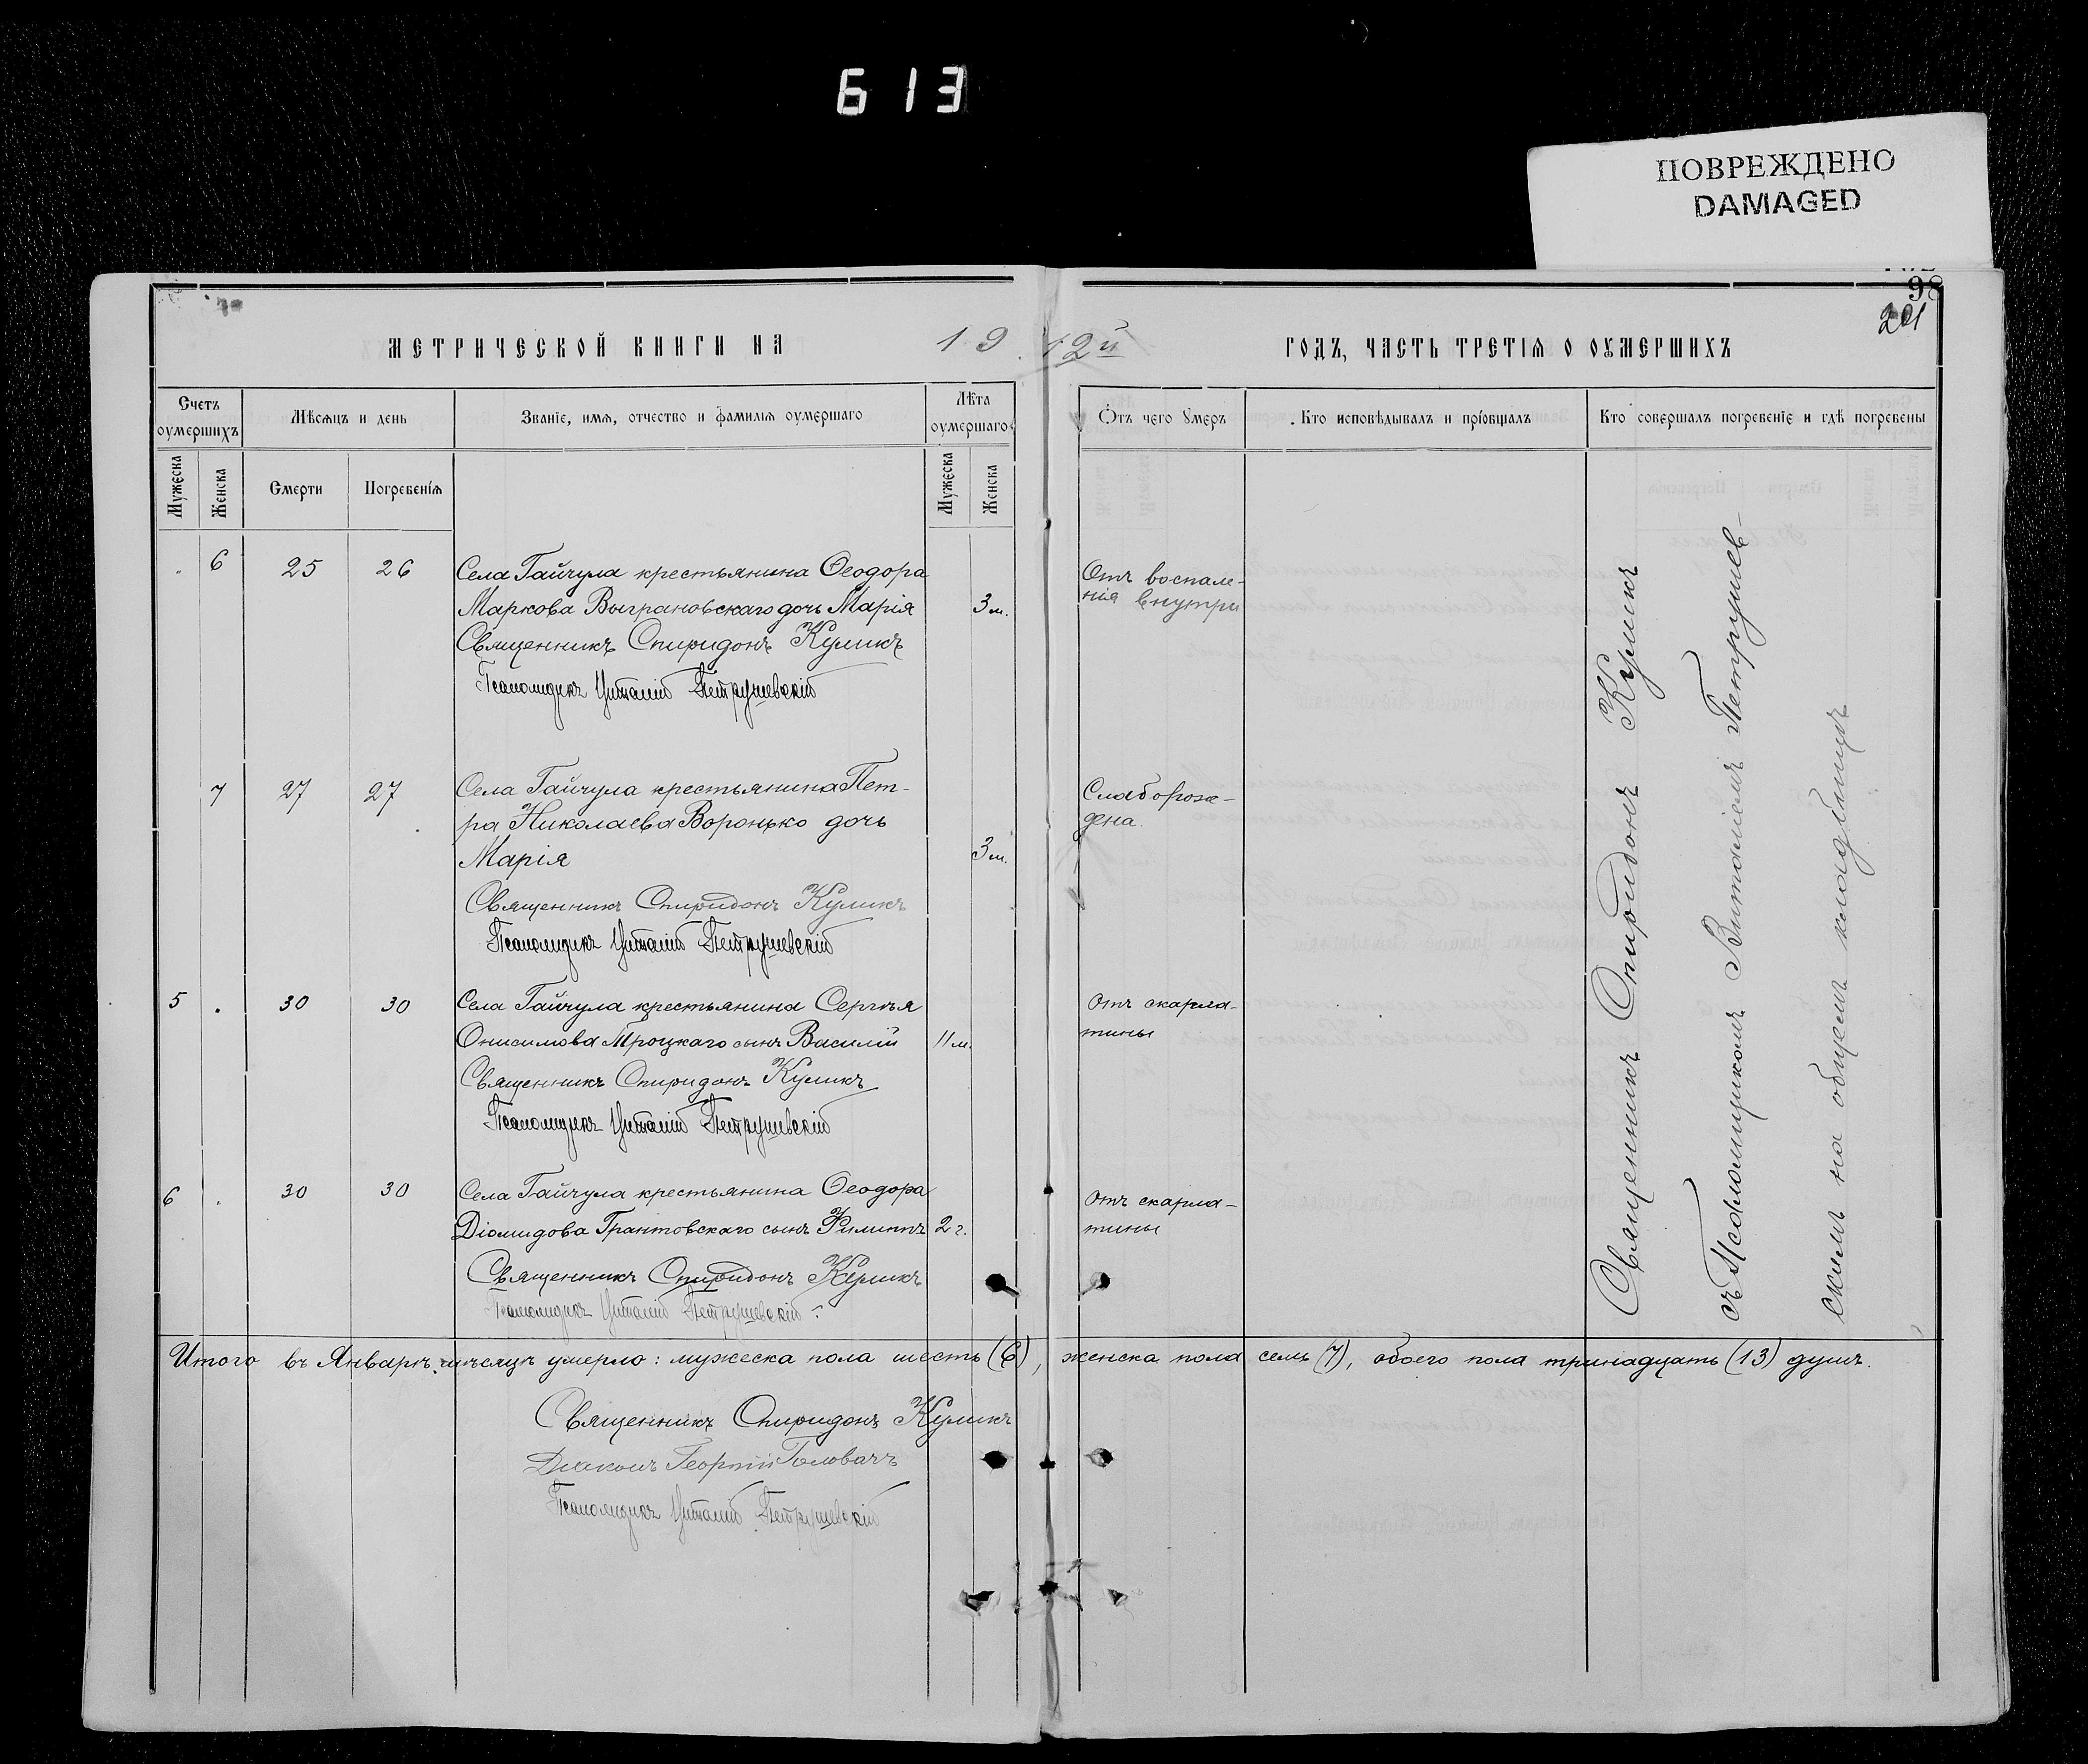 613
ПОВРЕЖДЕНО
DAMAGED
98
МЕТРИЧЕСКОЙ КНИГИ НА 1912й ГОДЪ, ЧАСТЬ ТРЕТІЯ О ОУМЕРШИХЪ
Счетъ оумершихъ
Мѣсяцъ и день
Званіе, имя, отчество и фамилія оумершаго
Лѣта оумершаго
Отъ чего умеръ
Кто исповѣдывалъ и пріобщалъ
Кто совершалъ погребеніе и гдѣ погребены
Мужеска
Женска
Смерти
Погребенія
Мужеска
Женска
6 25 26 Села Гайчула крестьянина Ѳеодора
Маркова Выграновскаго дочь Марія 3 м.
Отъ воспале-
нія внутри
Священникъ Спиридонъ Куликъ
Псаломщикъ Виталій Петрушевскій
7 27 27 Села Гайчула крестьянина Пет-
ра Николаева Воронько дочь
Марія 3 м.
Слаборож-
дена.
Священникъ Спиридонъ Куликъ
Псаломщикъ Виталій Петрушевскій
5 30 30 Села Гайчула крестьянина Сергѣя
Онисимова Троцкаго сынъ Василій 11 м.
Отъ скарла-
тины
Священникъ Спиридонъ Куликъ
Псаломщикъ Виталій Петрушевскій
6 30 30 Села Гайчула крестьянина Ѳеодора
Діомидова Грантовскаго сынъ Филиппъ 2 г.
Отъ скарла-
тины
Священникъ Спиридонъ Куликъ
Псаломщикъ Виталій Петрушевскій
Священникъ Спиридонъ Куликъ
съ Псаломщикомъ Виталіемъ Петрушев-
скимъ на общемъ кладбищѣ
Итого въ Январѣ мѣсяцѣ умерло: мужеска пола шесть (6), женска пола семь (7), обоего пола тринадцать (13) душъ.
Священникъ Спиридонъ Куликъ
Діаконъ Георгій Головачъ
Псаломщикъ Виталій Петрушевскій